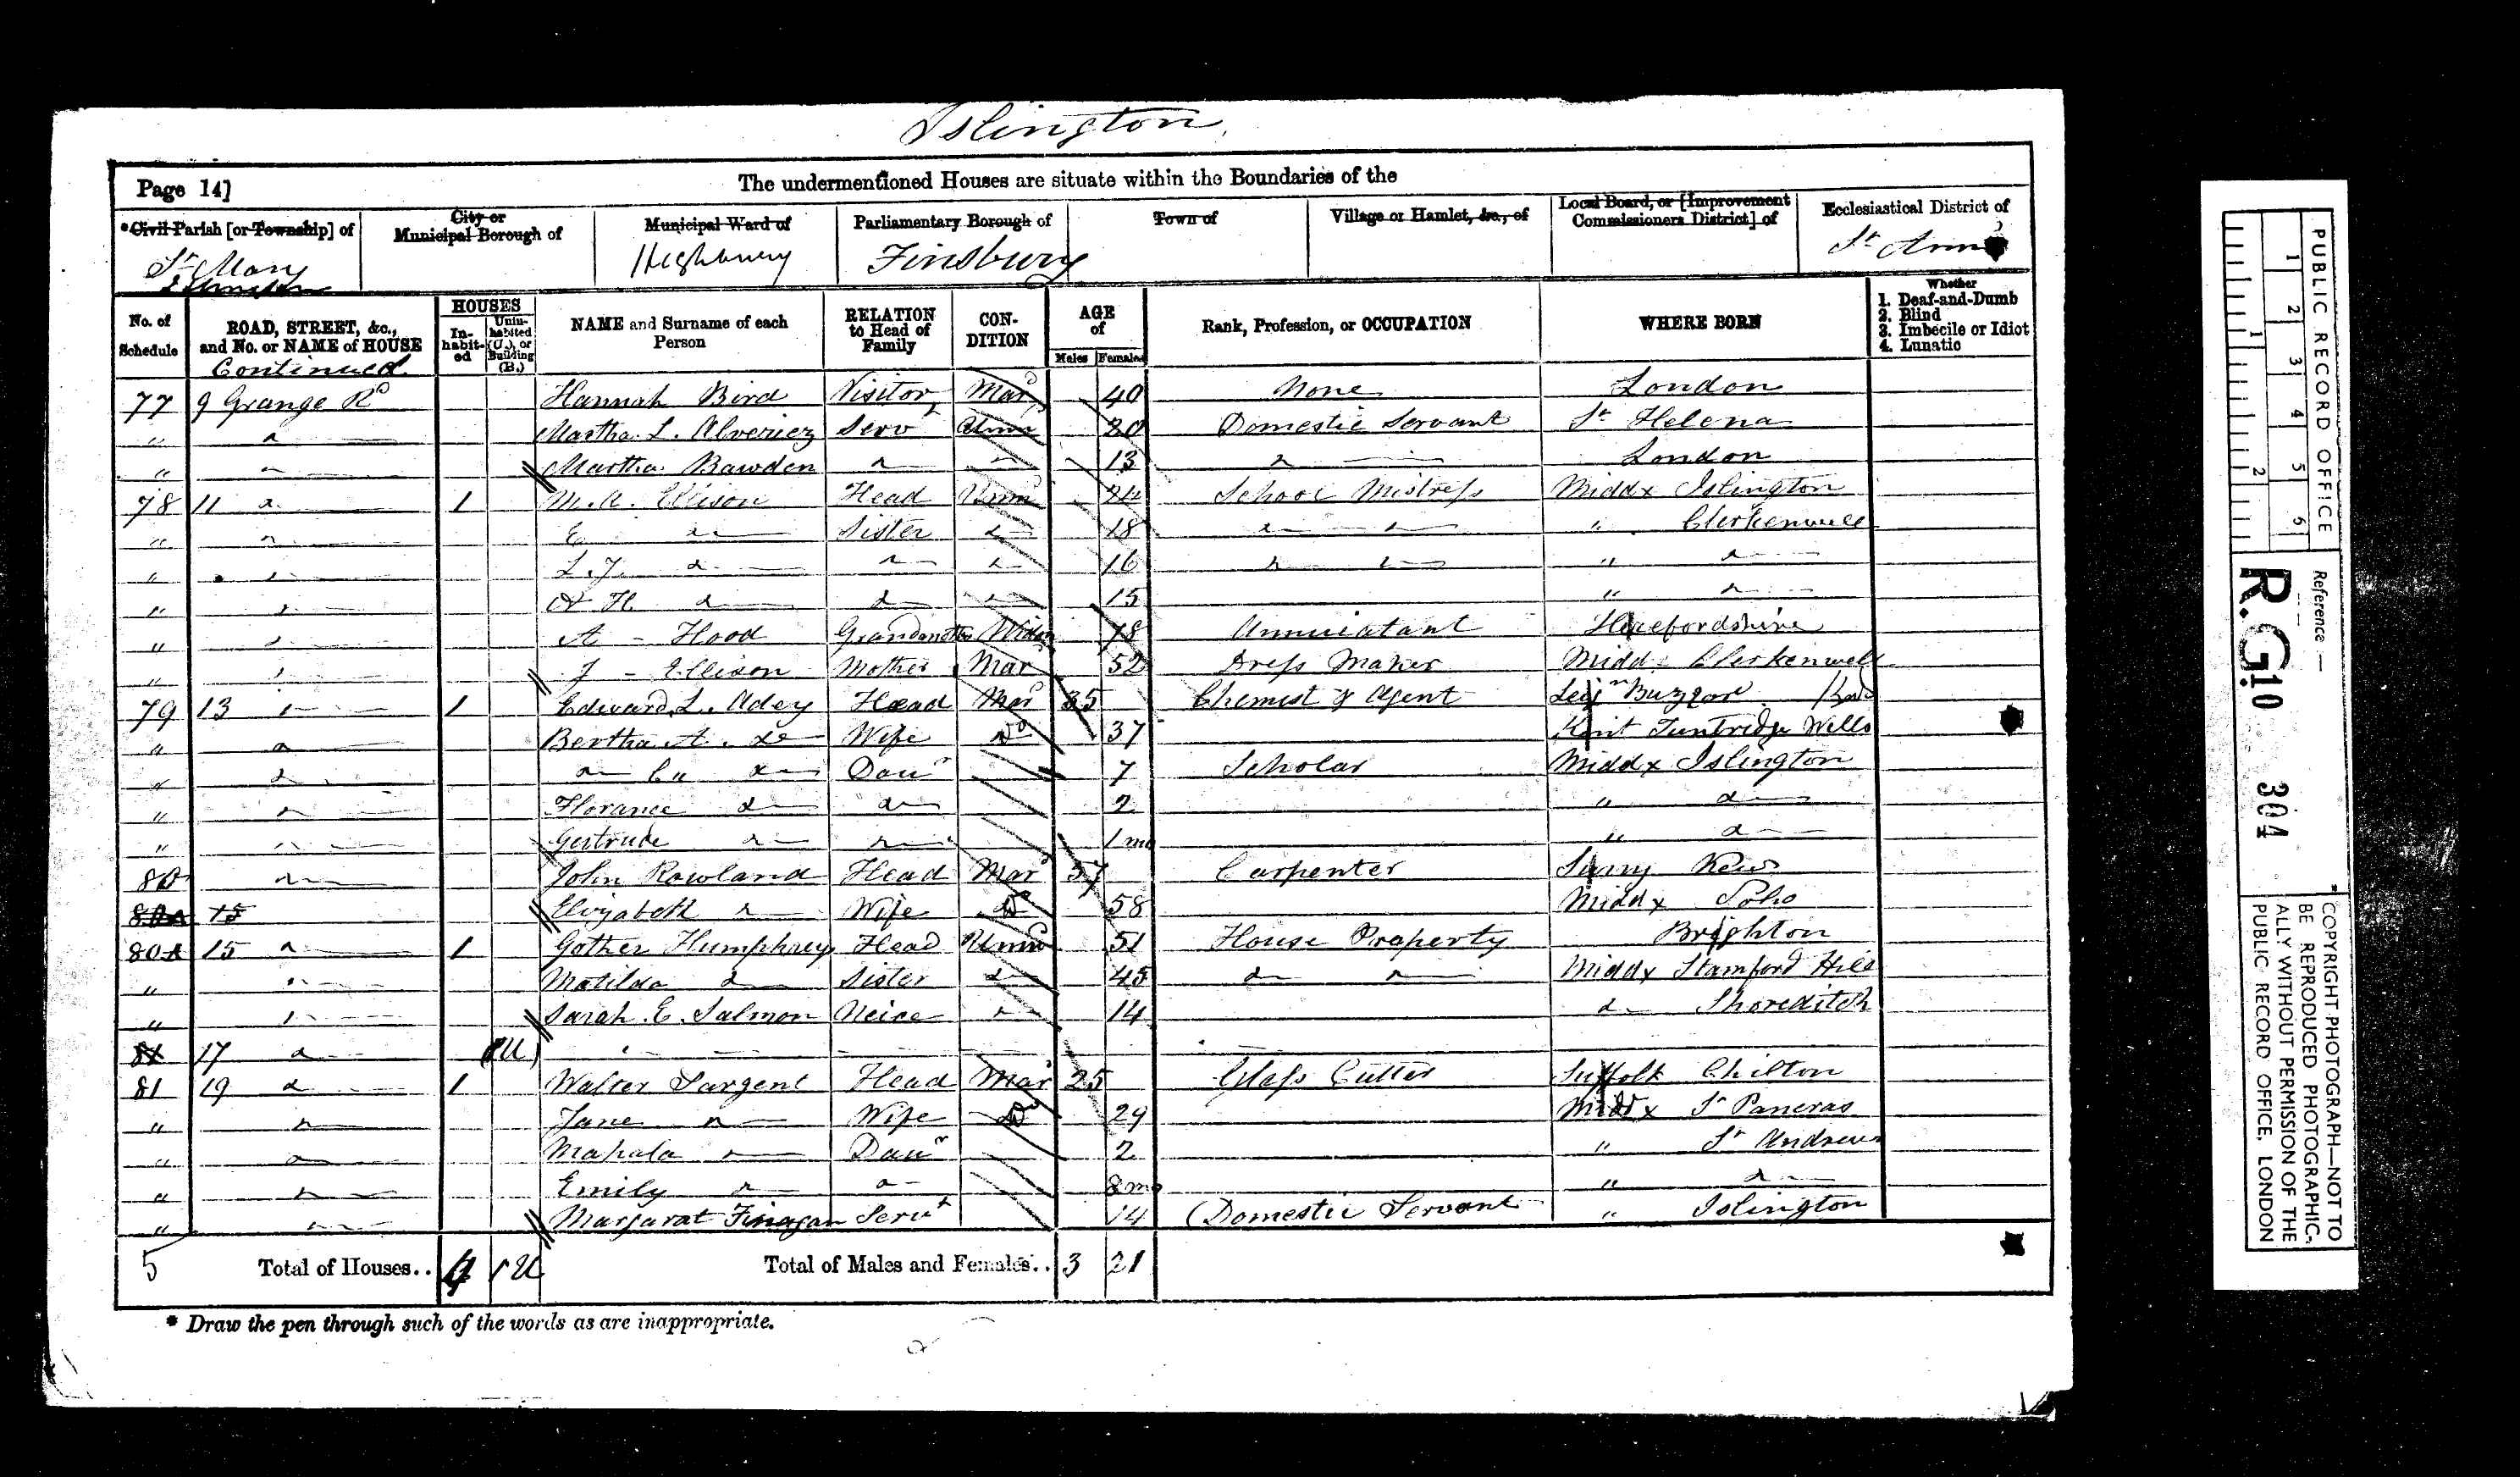 Islington
Page 14] The undermentioned Houses are situate within the Boundaries of the
*Civil Parish [or Township] of City or Municipal Borough of Municipal Ward of Parliamentary Borough of Town of Village or Hamlet, &c., of Local Board, or [Improvement Commissioners District] of Ecclesiastical District of
St Mary Islington Highbury Finsbury St Anne
No. of Schedule ROAD, STREET, &c., and No. or NAME of HOUSE HOUSES In-habit-ed Unin-habited (U.), or Building (B.) NAME and Surname of each Person RELATION to Head of Family CON-DITION AGE of Males Females Rank, Profession, or OCCUPATION WHERE BORN Whether 1. Deaf-and-Dumb 2. Blind 3. Imbecile or Idiot 4. Lunatic
Continued
77 9 Grange Rd Hannah Bird Visitor Mar 40 None London
" Martha L. Alveriez Servt Unm 20 Domestic Servant St Helena
" Martha Bawden 13 London
78 11 1 M. A. Ellison Head Unm 24 School Mistress Middx Islington
" E Sister 18 " Clerkenwell
" L. J. 16 "
" A H 15 "
" A - Hood Grandmother Widow 78 Annuiatant Herefordshire
" J - Ellison Mother Mar 52 Dress Maker Midd Clerkenwell
79 13 1 Edward L. Adey Head Mar 35 Chemist & Agent Leign Buzzard Beds
" Bertha A. do Wife Do 37 Kent Tuntridge Wells
" Daur 7 Scholar Middx Islington
" Florance 2 "
" Gertrude 1 mo "
80 John Rowland Head Mar 57 Carpenter Surry Kew
80A 15 Elizabeth Wife Do 58 Middx Soho
80A 15 1 Gother Humphrey Head Unm 51 House Property Brighton
" Matilda Sister 45 Middx Stamford Hill
" Sarah E. Salmon Neice 14 Shoreditch
81 17 (1U)
81 19 1 Walter Sargent Head Mar 25 Glass Cutter Suffolk Chilton
" Jane Wife Do 29 Middx St Pancras
" Mahala Daur 2 " St Andrews
" Emily 8 mo "
" Margarat Finagan Servt 14 Domestic Servant " Islington
5 Total of Houses.. 4 1U Total of Males and Females.. 3 21
* Draw the pen through such of the words as are inappropriate.
PUBLIC RECORD OFFICE
1 2 3 4 5 6
1 2
Reference :—
R.G. 10 304
COPYRIGHT PHOTOGRAPH—NOT TO
BE REPRODUCED PHOTOGRAPHIC-
ALLY WITHOUT PERMISSION OF THE
PUBLIC RECORD OFFICE, LONDON